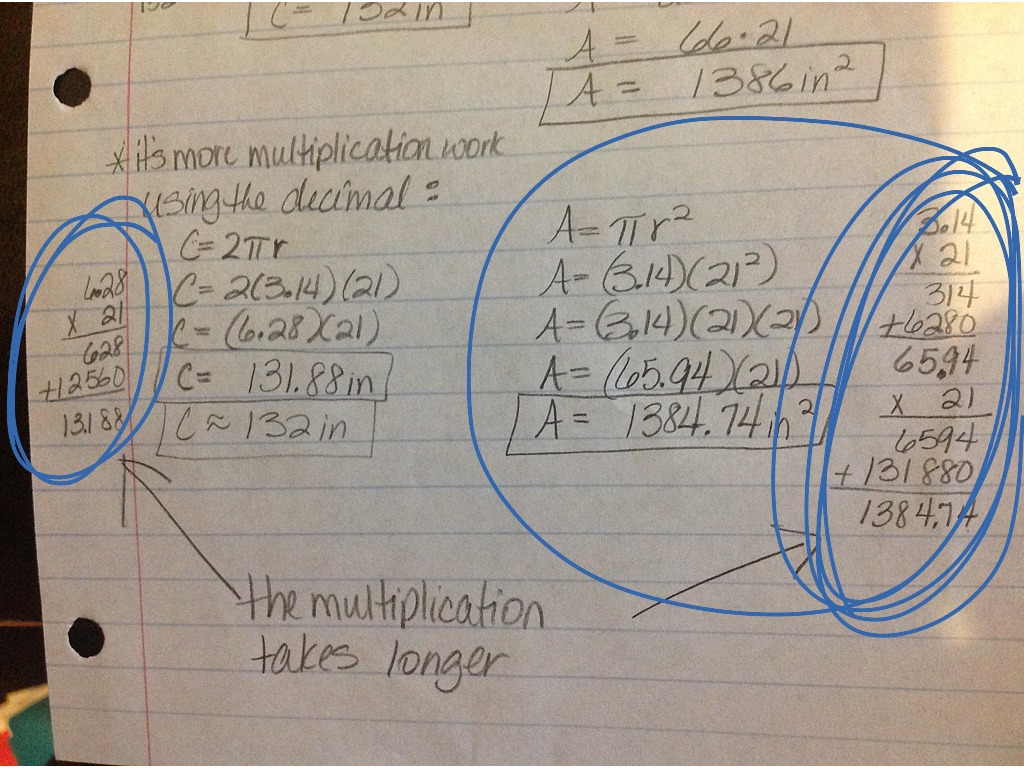 C = 132in
A = 66·21
A = 1386in²
*it's more multiplication work
using the decimal:
C=2πr
C=2(3.14)(21)
C=(6.28)(21)
C= 131.88in
C≈132in
6.28
x 21
628
+12560
131.88
A=πr²
A=(3.14)(21²)
A=(3.14)(21)(21)
A=(65.94)(21)
A= 1384.74in²
3.14
x 21
314
+6280
65.94
x 21
6594
+131880
1384.74
the multiplication
takes longer